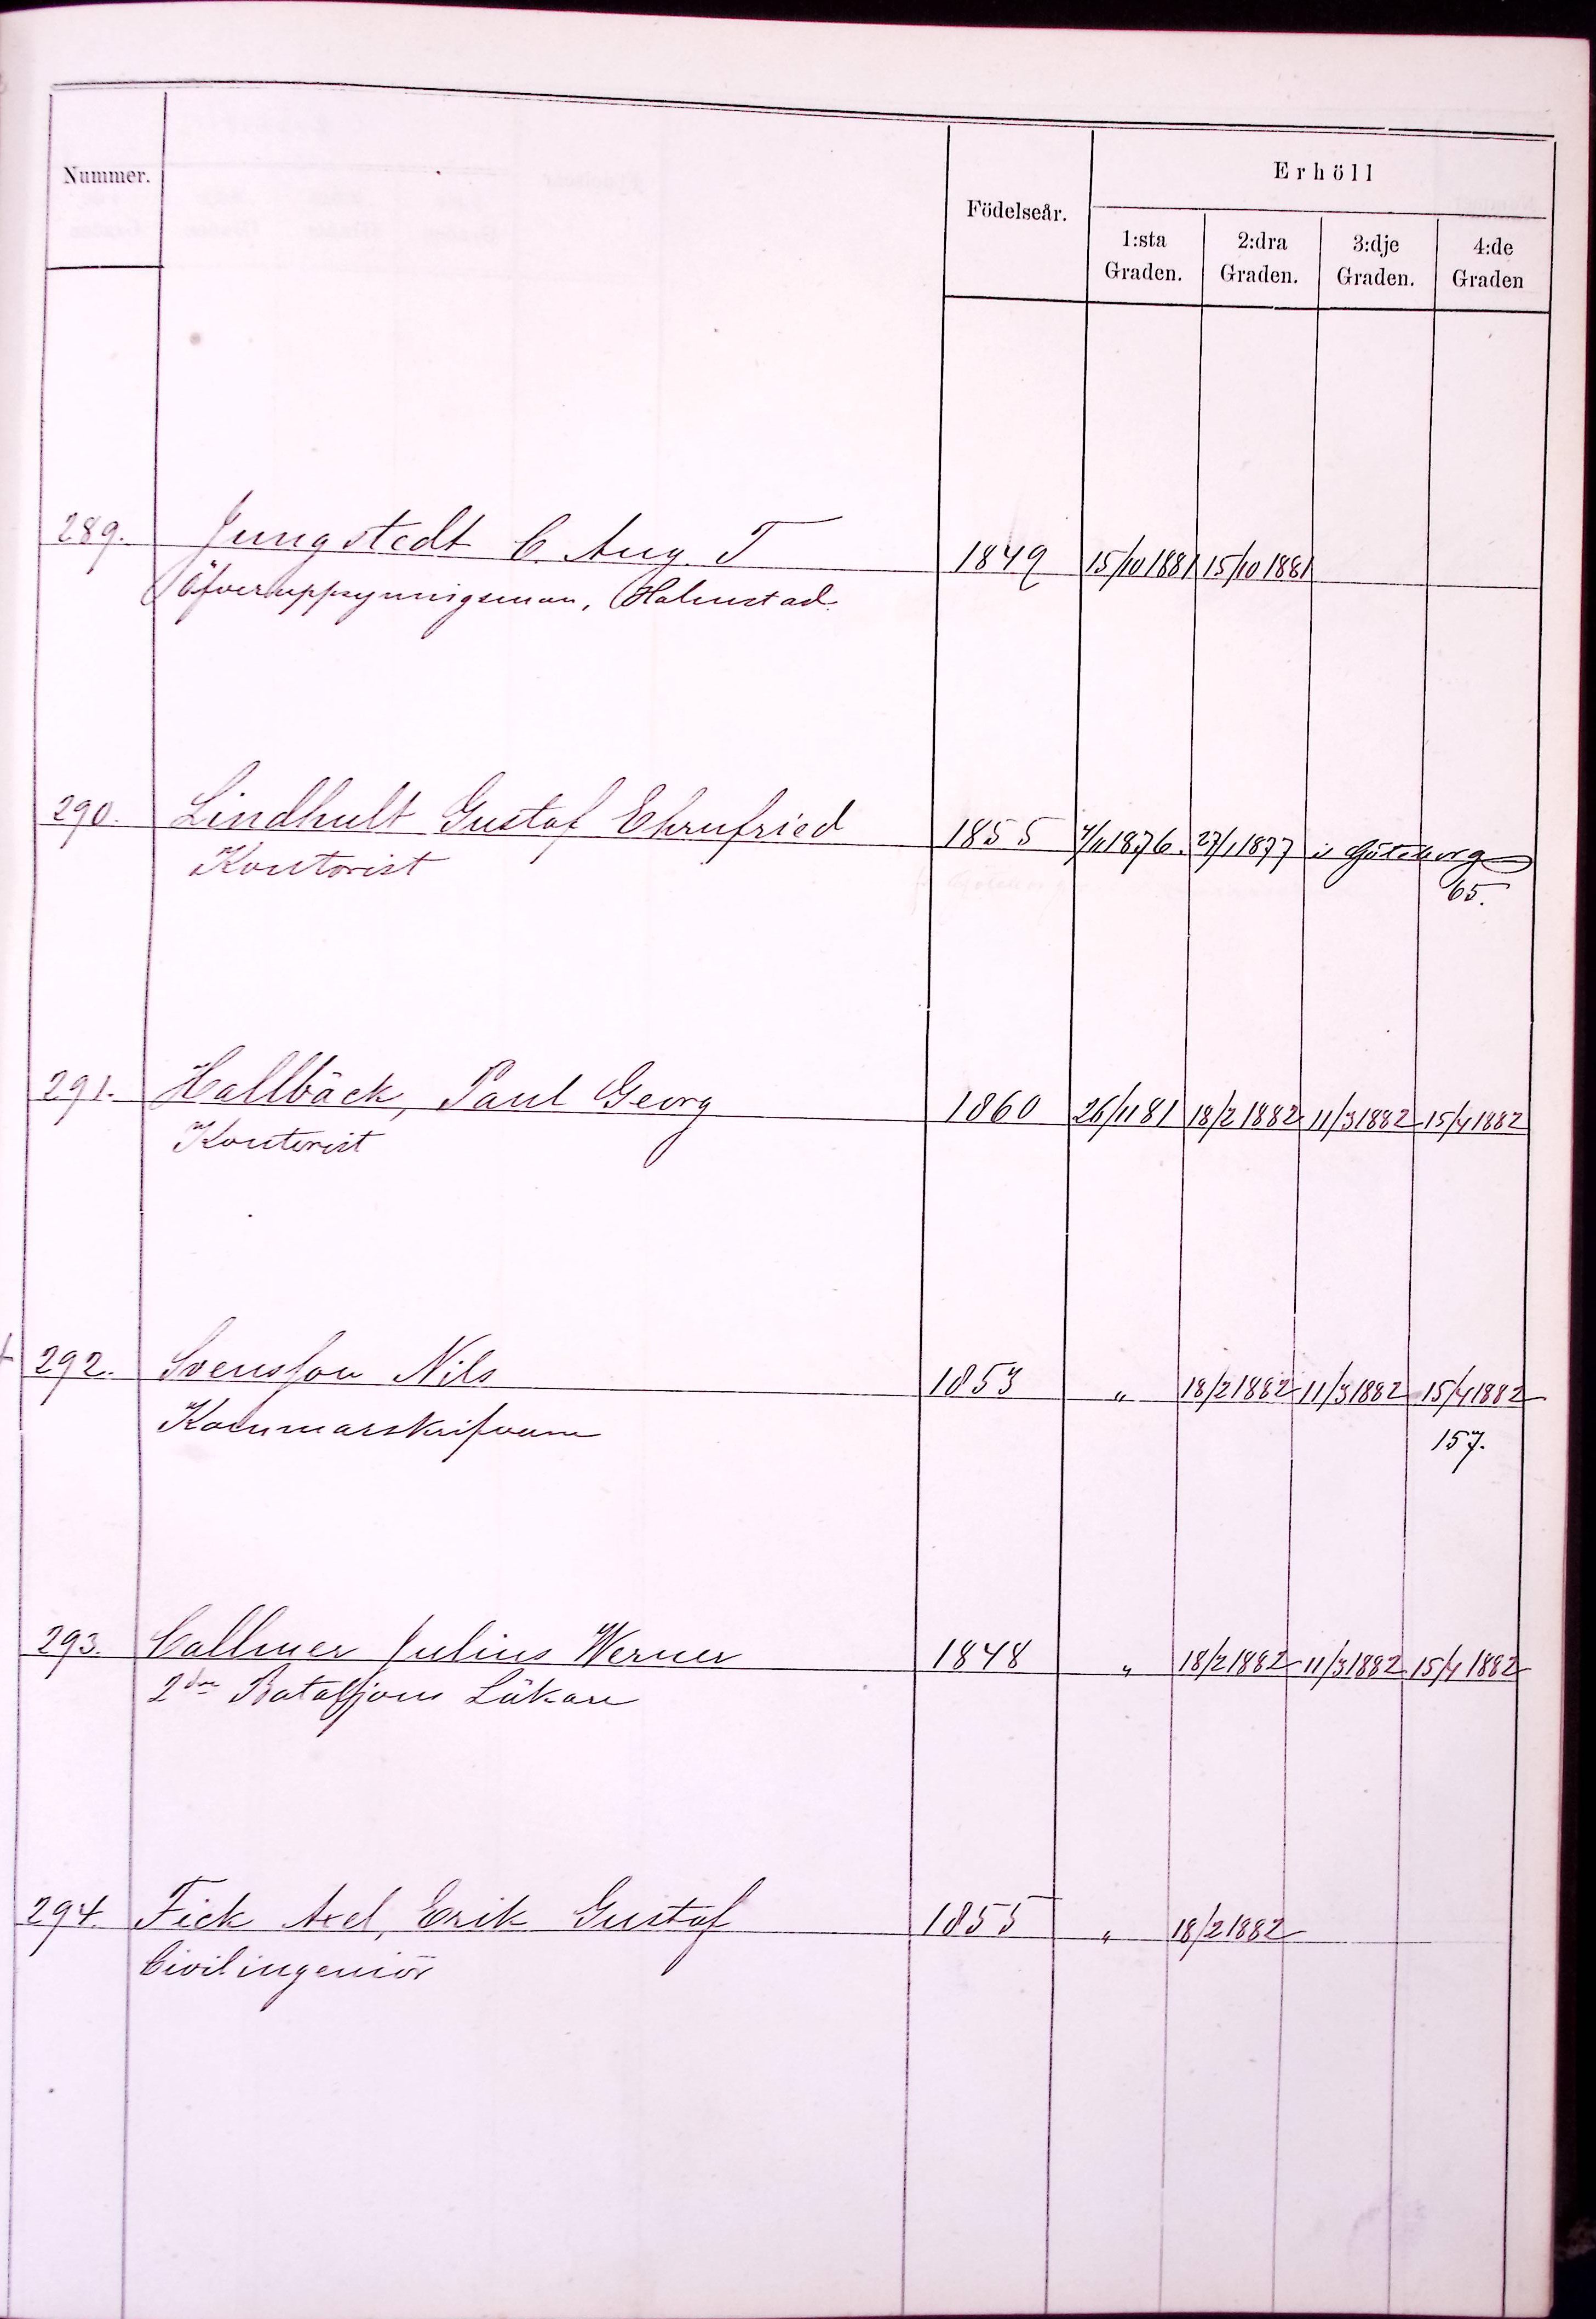 Nummer.
Födelseår.
Erhöll
1:sta Graden.
2:dra Graden.
3:dje Graden.
4:de Graden
289. Jungstedt C. Aug. T 1849 15/10 1881 15/10 1881
Öfveruppsynningsman, Halmstad.
290. Lindhult Gustaf Ehrnfried 1855 4/11 1876. 27/1 1877 i Göteborg
Kontorist 65.
291. Hallbäck, Paul Georg 1860 26/11 81 18/2 1882 11/3 1882 15/4 1882
Kontorist
292. Svensson Nils 1853 " 18/2 1882 11/3 1882 15/4 1882
Kammarskrifvare 157.
293. Callmer Julius Werner 1848 " 18/2 1882 11/3 1882 15/4 1882
2dre Bataljons Läkare
294. Fick Axel, Erik Gustaf 1855 " 18/2 1882
Civilingeniör